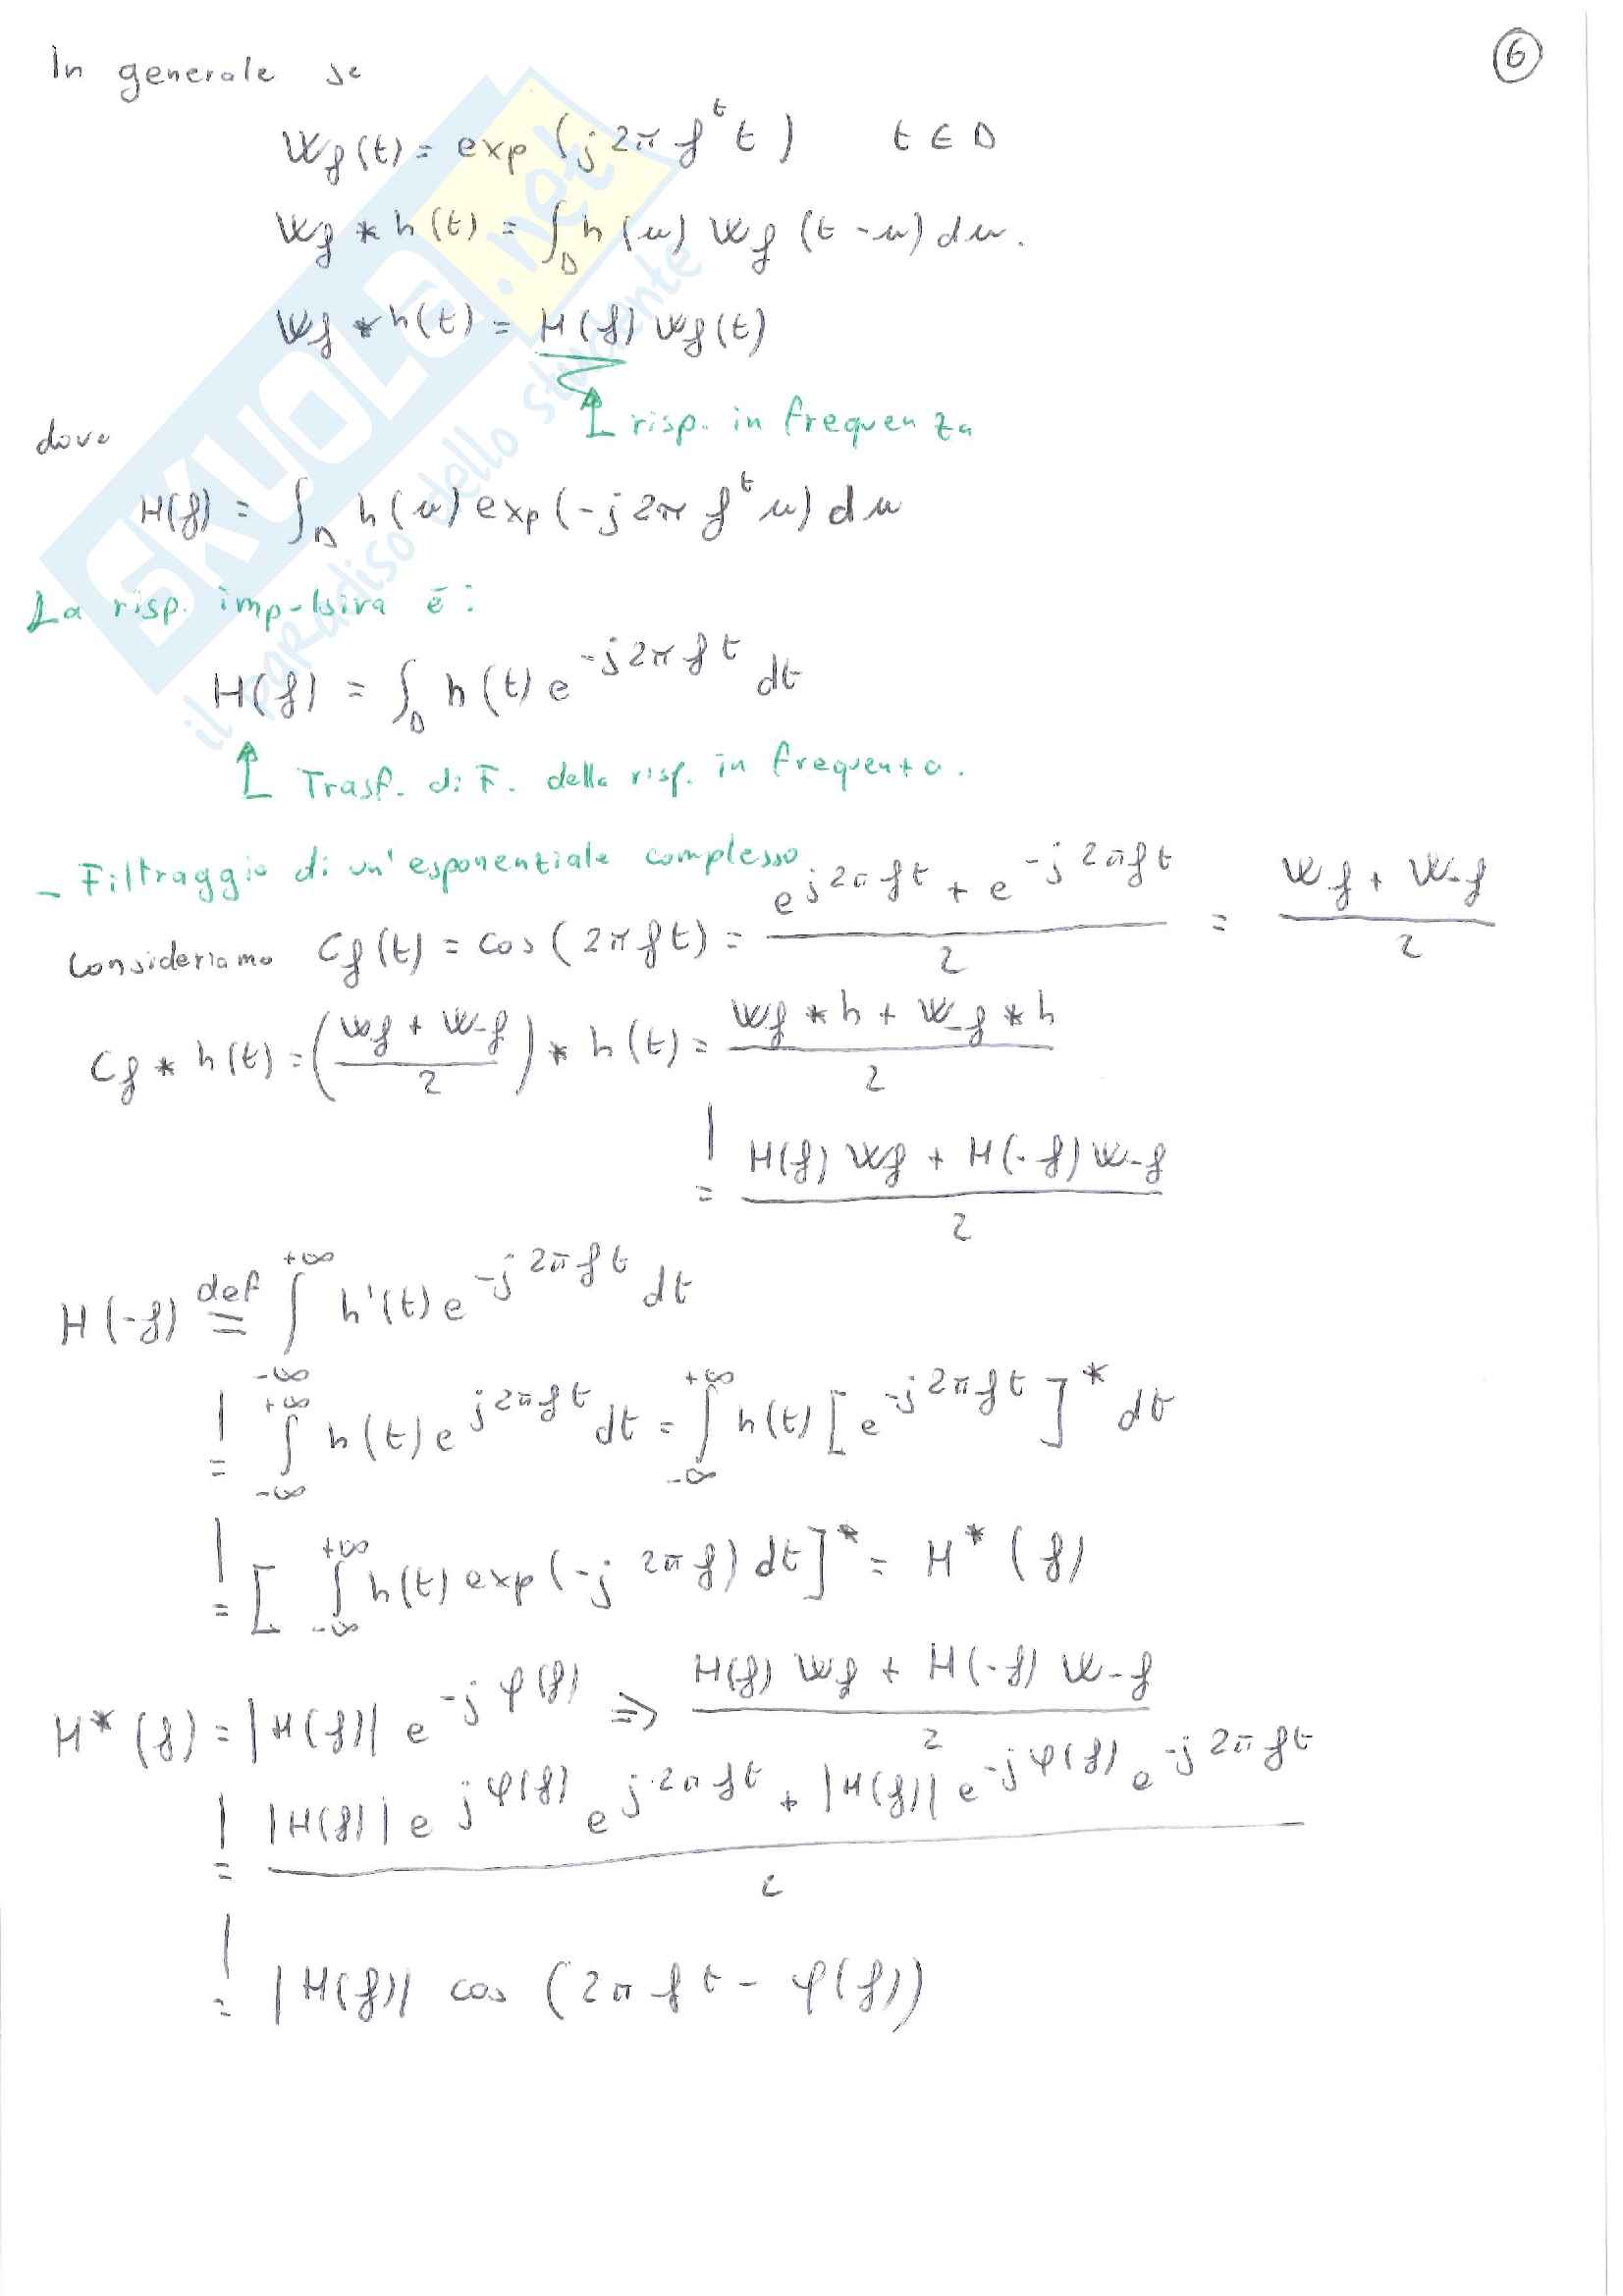 6
In generale se
W_f(t) = exp (j 2π f^t t) t ∈ D
W_f * h(t) = ∫_D h(u) W_f (t - u) du.
W_f * h(t) = H(f) W_f(t)
risp. in frequenza
dove
H(f) = ∫_D h(u) exp(-j 2π f^t u) du
La risp. impulsiva è:
H(f) = ∫_D h(t) e^{-j2πft} dt
Trasf. di F. della risp. in frequenza.
- Filtraggio di un'esponenziale complesso
Consideriamo C_f(t) = cos(2πft) = (e^{j2πft} + e^{-j2πft})/2 = (W_f + W_-f)/2
C_f * h(t) = ((W_f + W_-f)/2) * h(t) = (W_f * h + W_-f * h)/2
= (H(f) W_f + H(-f) W_-f)/2
H(-f) def= ∫_{-∞}^{+∞} h'(t) e^{-j2πft} dt
= ∫_{-∞}^{+∞} h(t) e^{j2πft} dt = ∫_{-∞}^{+∞} h(t) [e^{-j2πft}]* dt
= [∫_{-∞}^{+∞} h(t) exp(-j 2πf) dt]* = H*(f)
H*(f) = |H(f)| e^{-jφ(f)} ⇒ (H(f) W_f + H(-f) W_-f)/2
= (|H(f)| e^{jφ(f)} e^{j2πft} + |H(f)| e^{-jφ(f)} e^{-j2πft})/2
= |H(f)| cos (2πft - φ(f))
SKUOLA.net
il paradiso dello studente